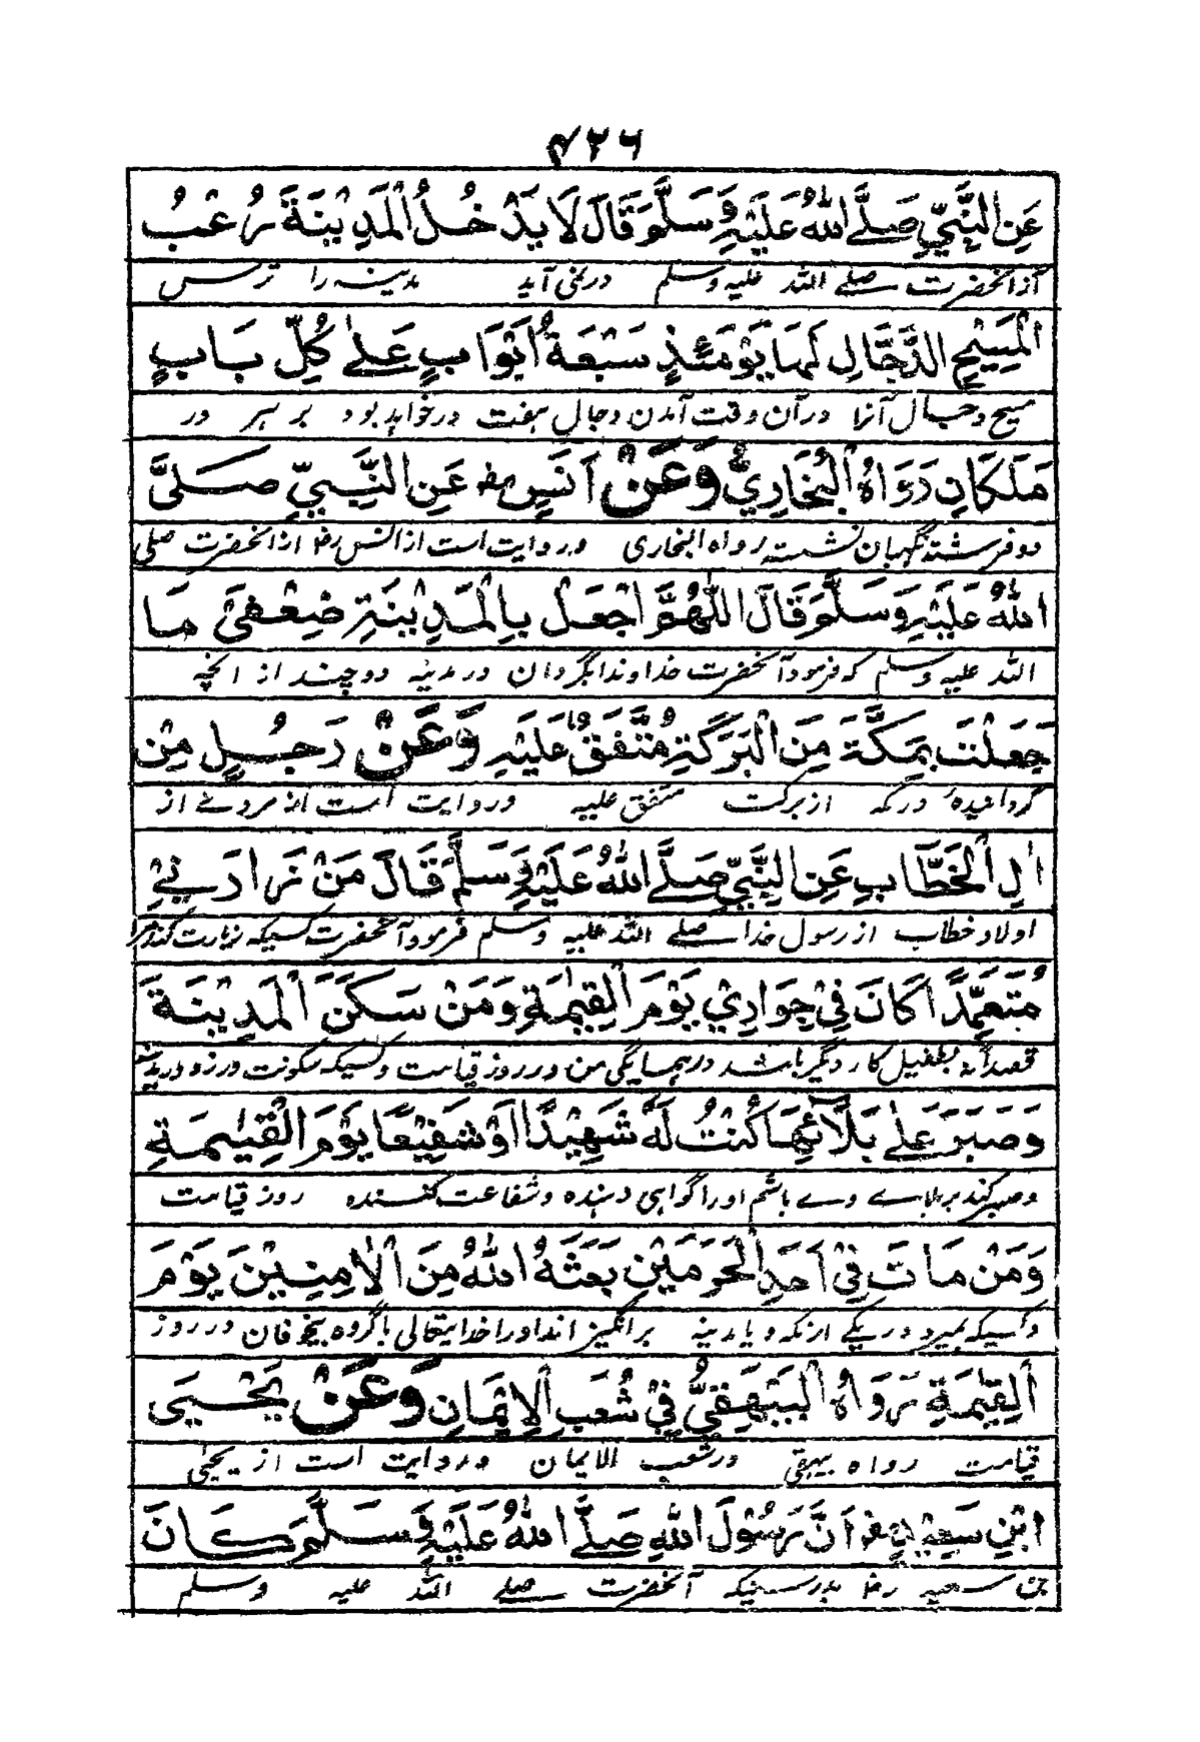 ۴۲۶
عَنِ النَّبِيِّ صَلَّے اللهُ عَلَيْهِ وَسَلَّمَ قَالَ لَا يَدْخُلُ الْمَدِيْنَةَ رُعْبُ
ازآنحضرت صلے اللہ علیہ وسلم درنمی آید مدینہ را ترس
الْمَسِيْحِ الدَّجَّالِ لَهَا يَوْمَئِذٍ سَبْعَةُ اَبْوَابٍ عَلٰے كُلِّ بَابٍ
مسیح دجال آنرا درآن وقت آمدن دجال ہفت درخواہد بود بر ہر در
مَلَكَانِ رَوَاهُ الْبُخَارِيُّ وَعَنْ اَنَسٍ رض عَنِ النَّبِيِّ صَلَّی
دو فرشتہ نگہبان نشستہ رواہ البخاری وروایت است از انس رض ازآنحضرت صلی
اللهُ عَلَيْهِ وَسَلَّمَ قَالَ اللّٰهُمَّ اجْعَلْ بِالْمَدِيْنَةِ ضِعْفَیْ مَا
اللہ علیہ وسلم کہ فرمود آنحضرت خداوندا بگردان در مدینہ دو چند از انچہ
جَعَلْتَ بِمَكَّةَ مِنَ الْبَرَكَةِ مُتَّفَقٌ عَلَيْهِ وَعَنْ رَجُلٍ مِنْ
گردانیدہٴ در مکہ از برکت متفق علیہ وروایت است از مردے از
اٰلِ الْخَطَّابِ عَنِ النَّبِيِّ صَلَّے اللهُ عَلَيْهِ وَسَلَّمَ قَالَ مَنْ زَارَنِيْ
اولاد خطاب از رسول خدا صلے اللہ علیہ وسلم فرمود آنحضرت کسیکہ زیارت کند مرا
مُتَعَمِّدًا كَانَ فِيْ جِوَارِيْ يَوْمَ الْقِيٰمَةِ وَمَنْ سَكَنَ الْمَدِيْنَةَ
قصداً نہ بطفیل کار دیگر باشد در ہمسایگی من در روز قیامت وکسیکہ سکونت ورزد در مدینہ
وَصَبَرَ عَلٰے بَلَآئِهَا كُنْتُ لَهٗ شَهِيْدًا اَوْ شَفِيْعًا يَوْمَ الْقِيٰمَةِ
وصبر کند بر بلاے وے باشم اورا گواہی دہندہ وشفاعت کنندہ روز قیامت
وَمَنْ مَاتَ فِيْ اَحَدِ الْحَرَمَيْنِ بَعَثَهُ اللهُ مِنَ الْاٰمِنِيْنَ يَوْمَ
وکسیکہ بمیرد در یکے از مکہ و یا مدینہ برانگیزاند اورا خدایتعالی باگروہ بیخوفان در روز
الْقِيٰمَةِ رَوَاهُ الْبَيْهَقِيُّ فِيْ شُعَبِ الْاِيْمَانِ وَعَنْ يَحْيٰی
قیامت رواہ بیہقی در شعب الایمان وروایت است از یحییٰ
ابْنِ سَعِيْدٍ رض اَنَّ رَسُوْلَ اللهِ صَلَّے اللهُ عَلَيْهِ وَسَلَّمَ كَانَ
بن سعید رض بدرستیکہ آنحضرت صلے اللہ علیہ وسلم